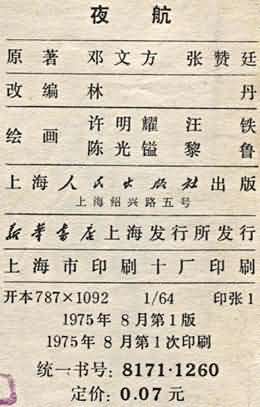 夜航
原著 邓文方 张赞廷
改编 林丹
绘画 许明耀 汪铁
陈光镒 黎鲁
上海人民出版社出版
上海绍兴路五号
新华书店上海发行所发行
上海市印刷十厂印刷
开本787×1092 1/64 印张1
1975年8月第1版
1975年8月第1次印刷
统一书号:8171·1260
定价:0.07元